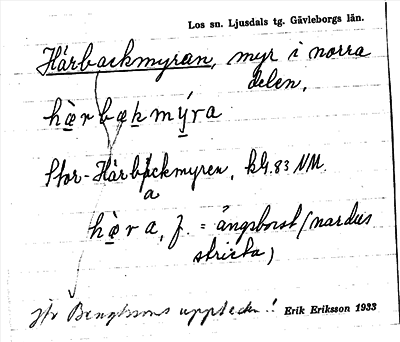 Los sn. Ljusdals tg. Gävleborgs län.
Härbackmyran, myr i norra
delen.
hæ̀rbæþmýra
Stor-Härbackmyren, kG.83 NM.
a
hæ̀ra, f. = ängsborst (nardus
stricta)
jfr Bengtssons uppteckn.!
Erik Eriksson 1933